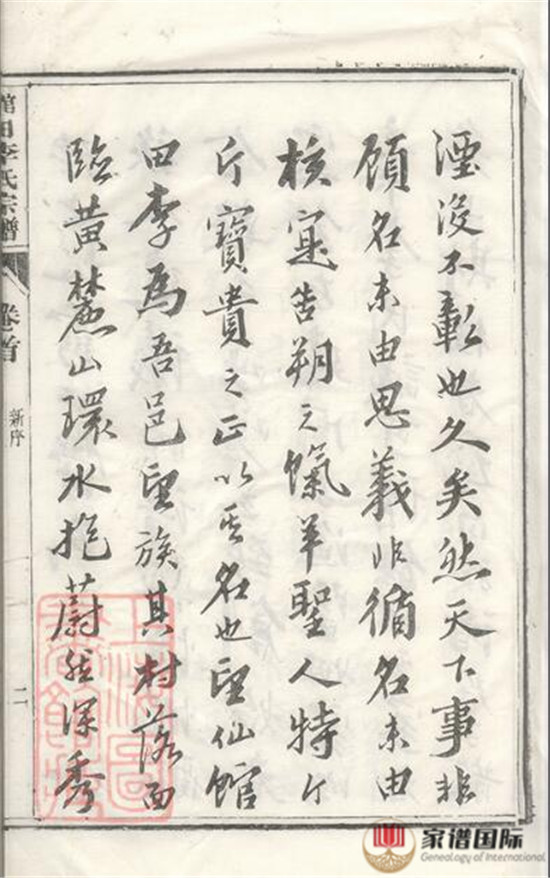 湮没不彰也久矣然天下事非
顧名末由思義非循名末由
核寔告朔之餼羊聖人特斤
斤寶貴之正以其名也望仙館
田李為吾邑望族其村落面
臨黃麓山環水抱蔚然深秀
館田李氏宗譜
卷首
新序
二
上海圖
書館藏
家谱国际
Genealogy of International